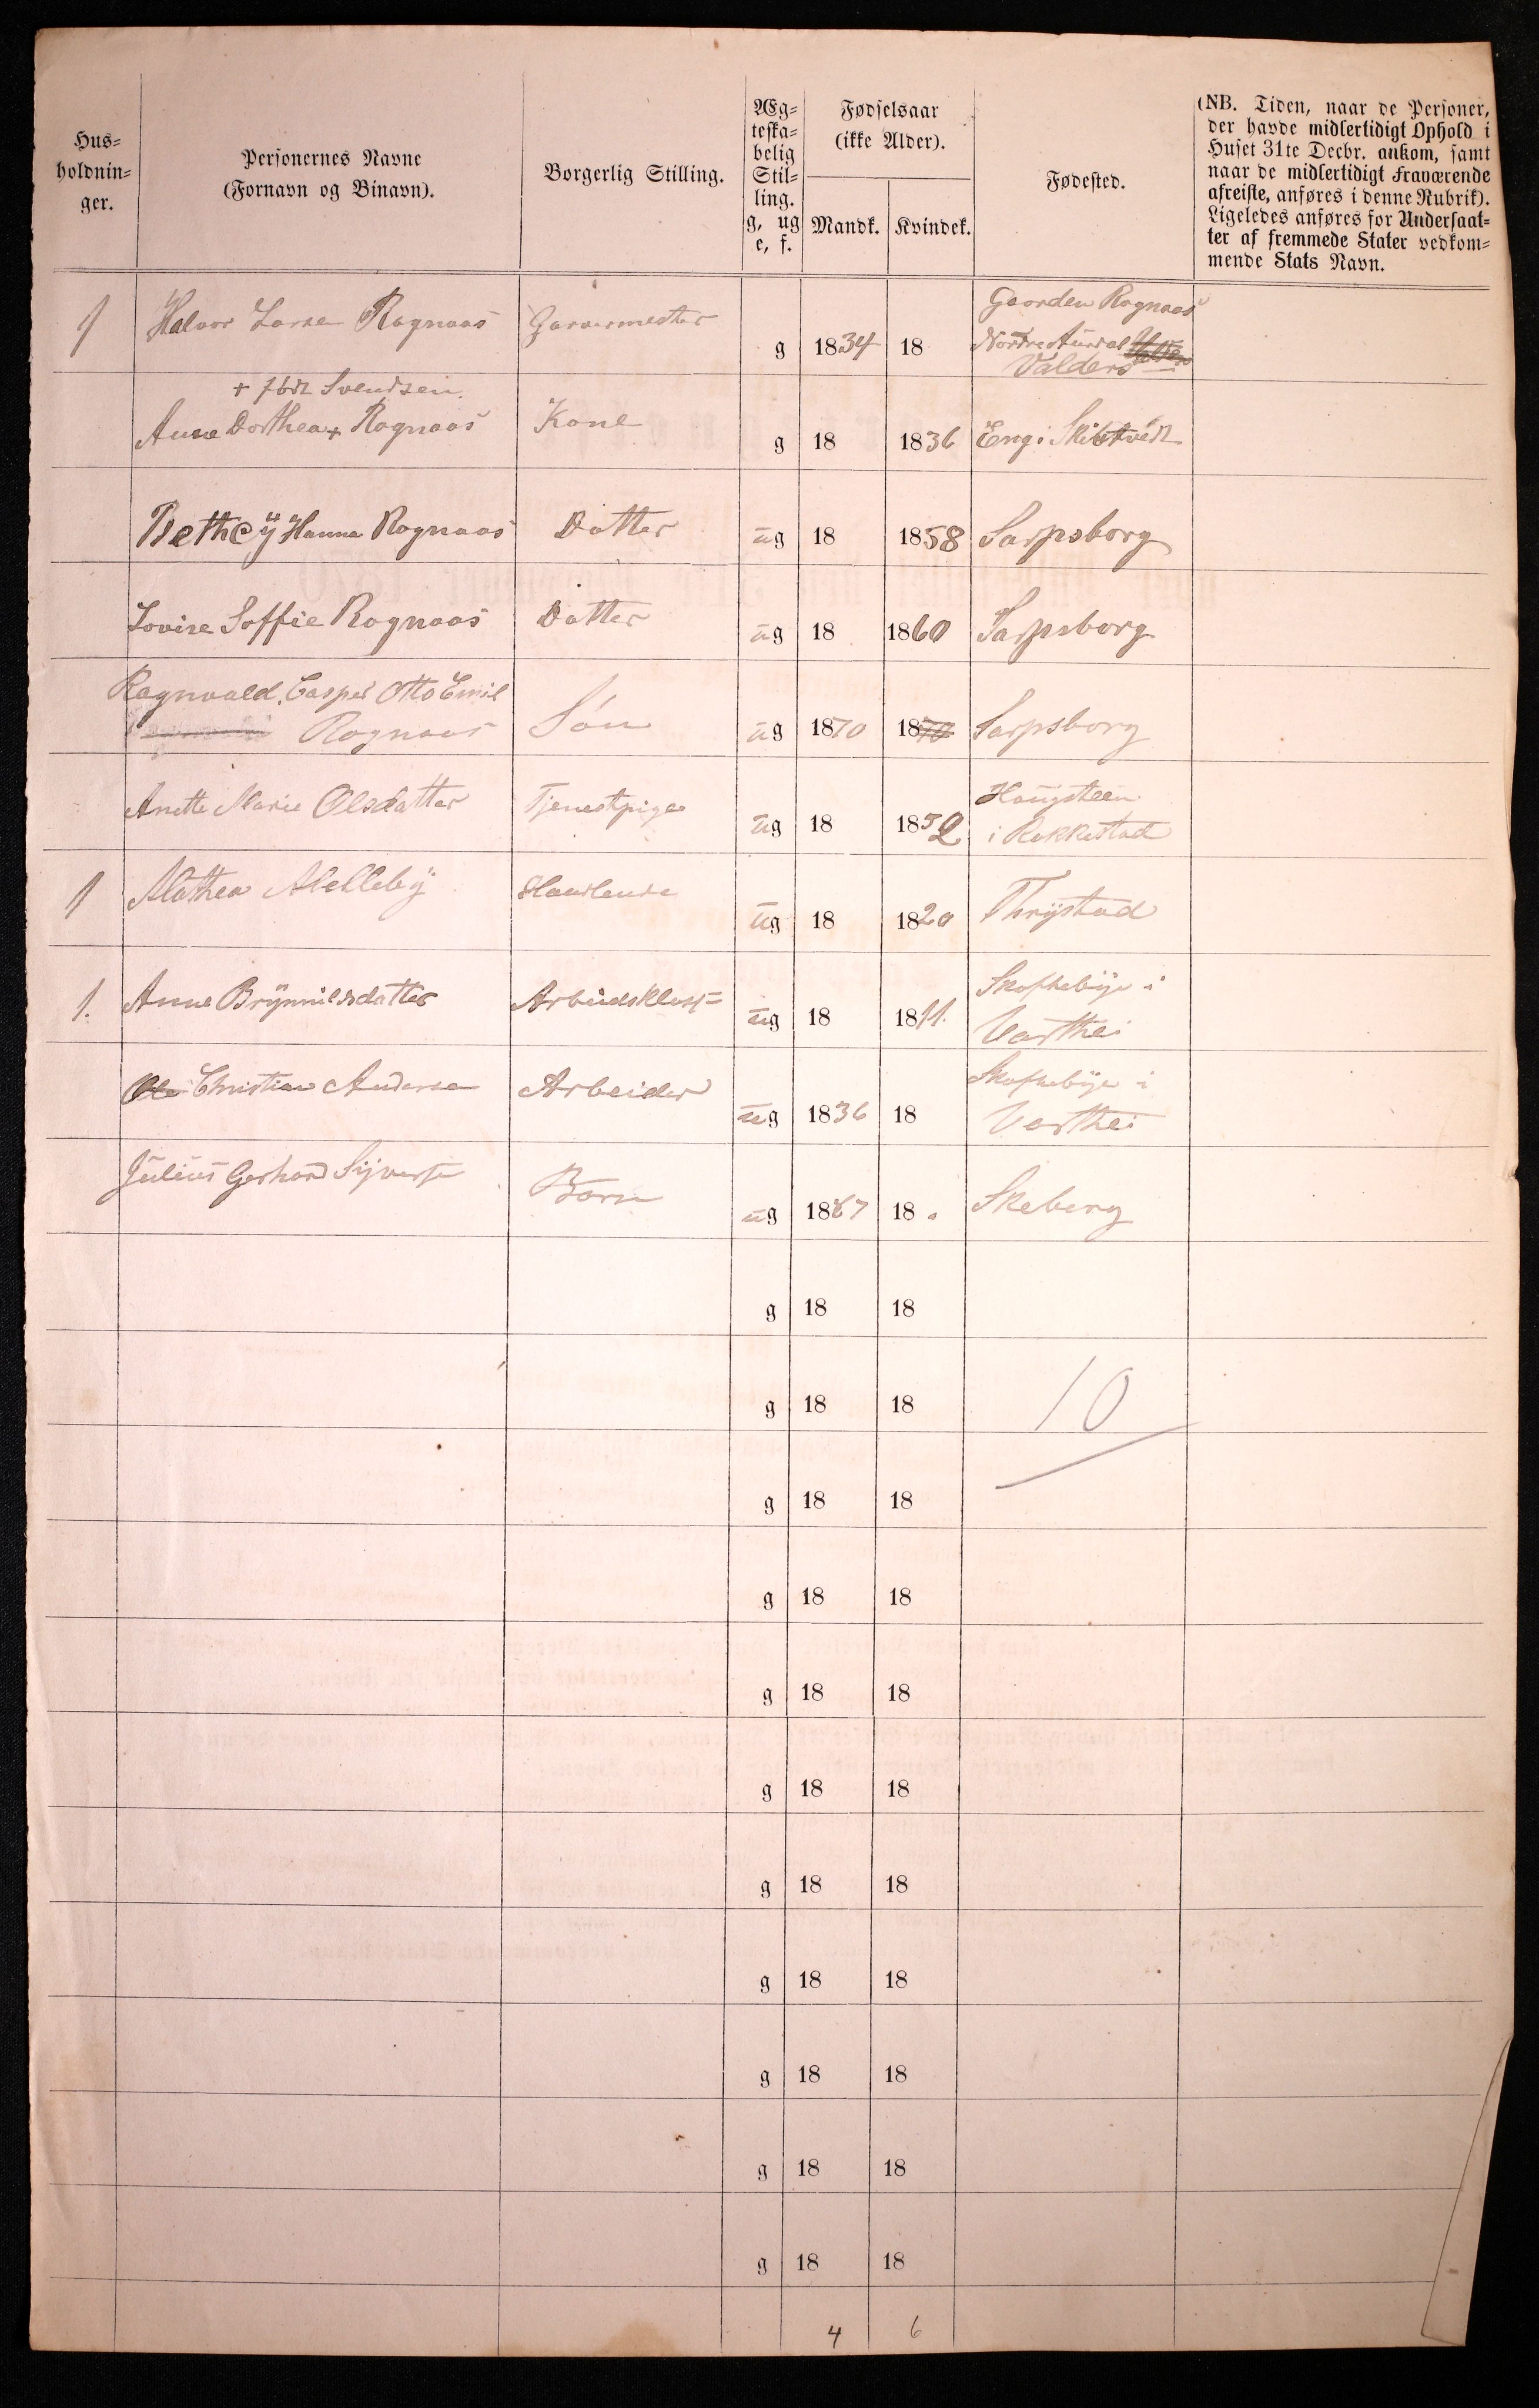 Hus-
holdnin-
ger.
Personernes Navne
(Fornavn og Binavn).
Borgerlig Stilling.
Æg-
teska-
belig
Stil-
ling.
g, ug
e, f.
Fødselsaar
(ikke Alder).
Mandk. Kvindek.
Fødested.
(NB. Tiden, naar de Personer,
der havde midlertidigt Ophold i
Huset 31te Decbr. ankom, samt
naar de midlertidigt Fraværende
afreiste, anføres i denne Rubrik).
Ligeledes anføres for Undersaat-
ter af fremmede Stater vedkom-
mende Stats Navn.
Gaarden Rognaas
1 Halvor Larsen Rognaas Garvermester g 1834 18 Nordre Aurdal
Valders
+ født Svendsen.
Anne Dorthea + Rognaas Kone g 18 1836 Eng i Skibtvedt
Bethey Hanna Rognaas Datter ug 18 1858 Sarpsborg
Lovise Soffie Rognaas Datter ug 18 1860 Sarpsborg
Ragnvald. Casper Otto Emil
Rognaas Søn ug 1870 1870 Sarpsborg
Haugsteen
Anette Marie Olsdatter Tjenestpige ug 18 1852 i Rakkestad
1 Mathea Melleby ug 18 1820 Thrystad
1. Anne Brynnildsdatter Arbeidsklass= ug 18 1811. Skoftebye i
Varthei
Ole Christian Andersen Arbeider ug 1836 18 Skoftebye i
Varthei
Julius Gerhard Sijversen Barn ug 1867 18 Skeberg
g 18 18
g 18 18 10
g 18 18
g 18 18
g 18 18
g 18 18
g 18 18
g 18 18
g 18 18
g 18 18
g 18 18
4 6